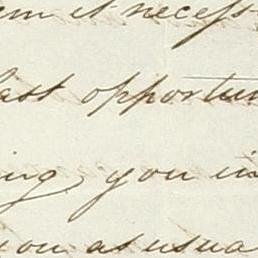 em it necess
last opportun
ing you in
you as usua